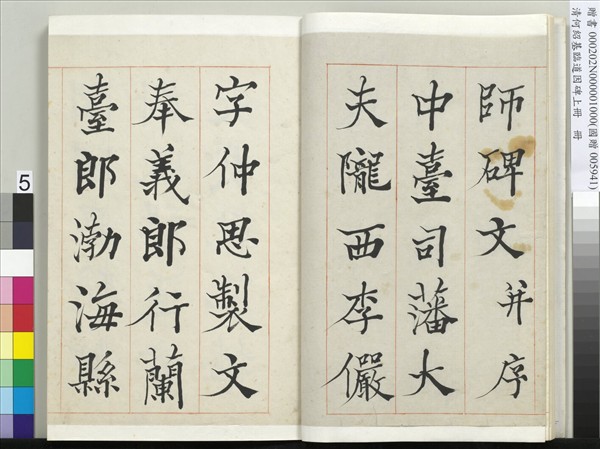 師碑文并序
中臺司藩大
夫隴西李儼
字仲思製文
奉義郎行蘭
臺郎渤海縣
贈書 000202N000001000(國贈 005941)
清何紹基臨道因碑上冊 冊
5